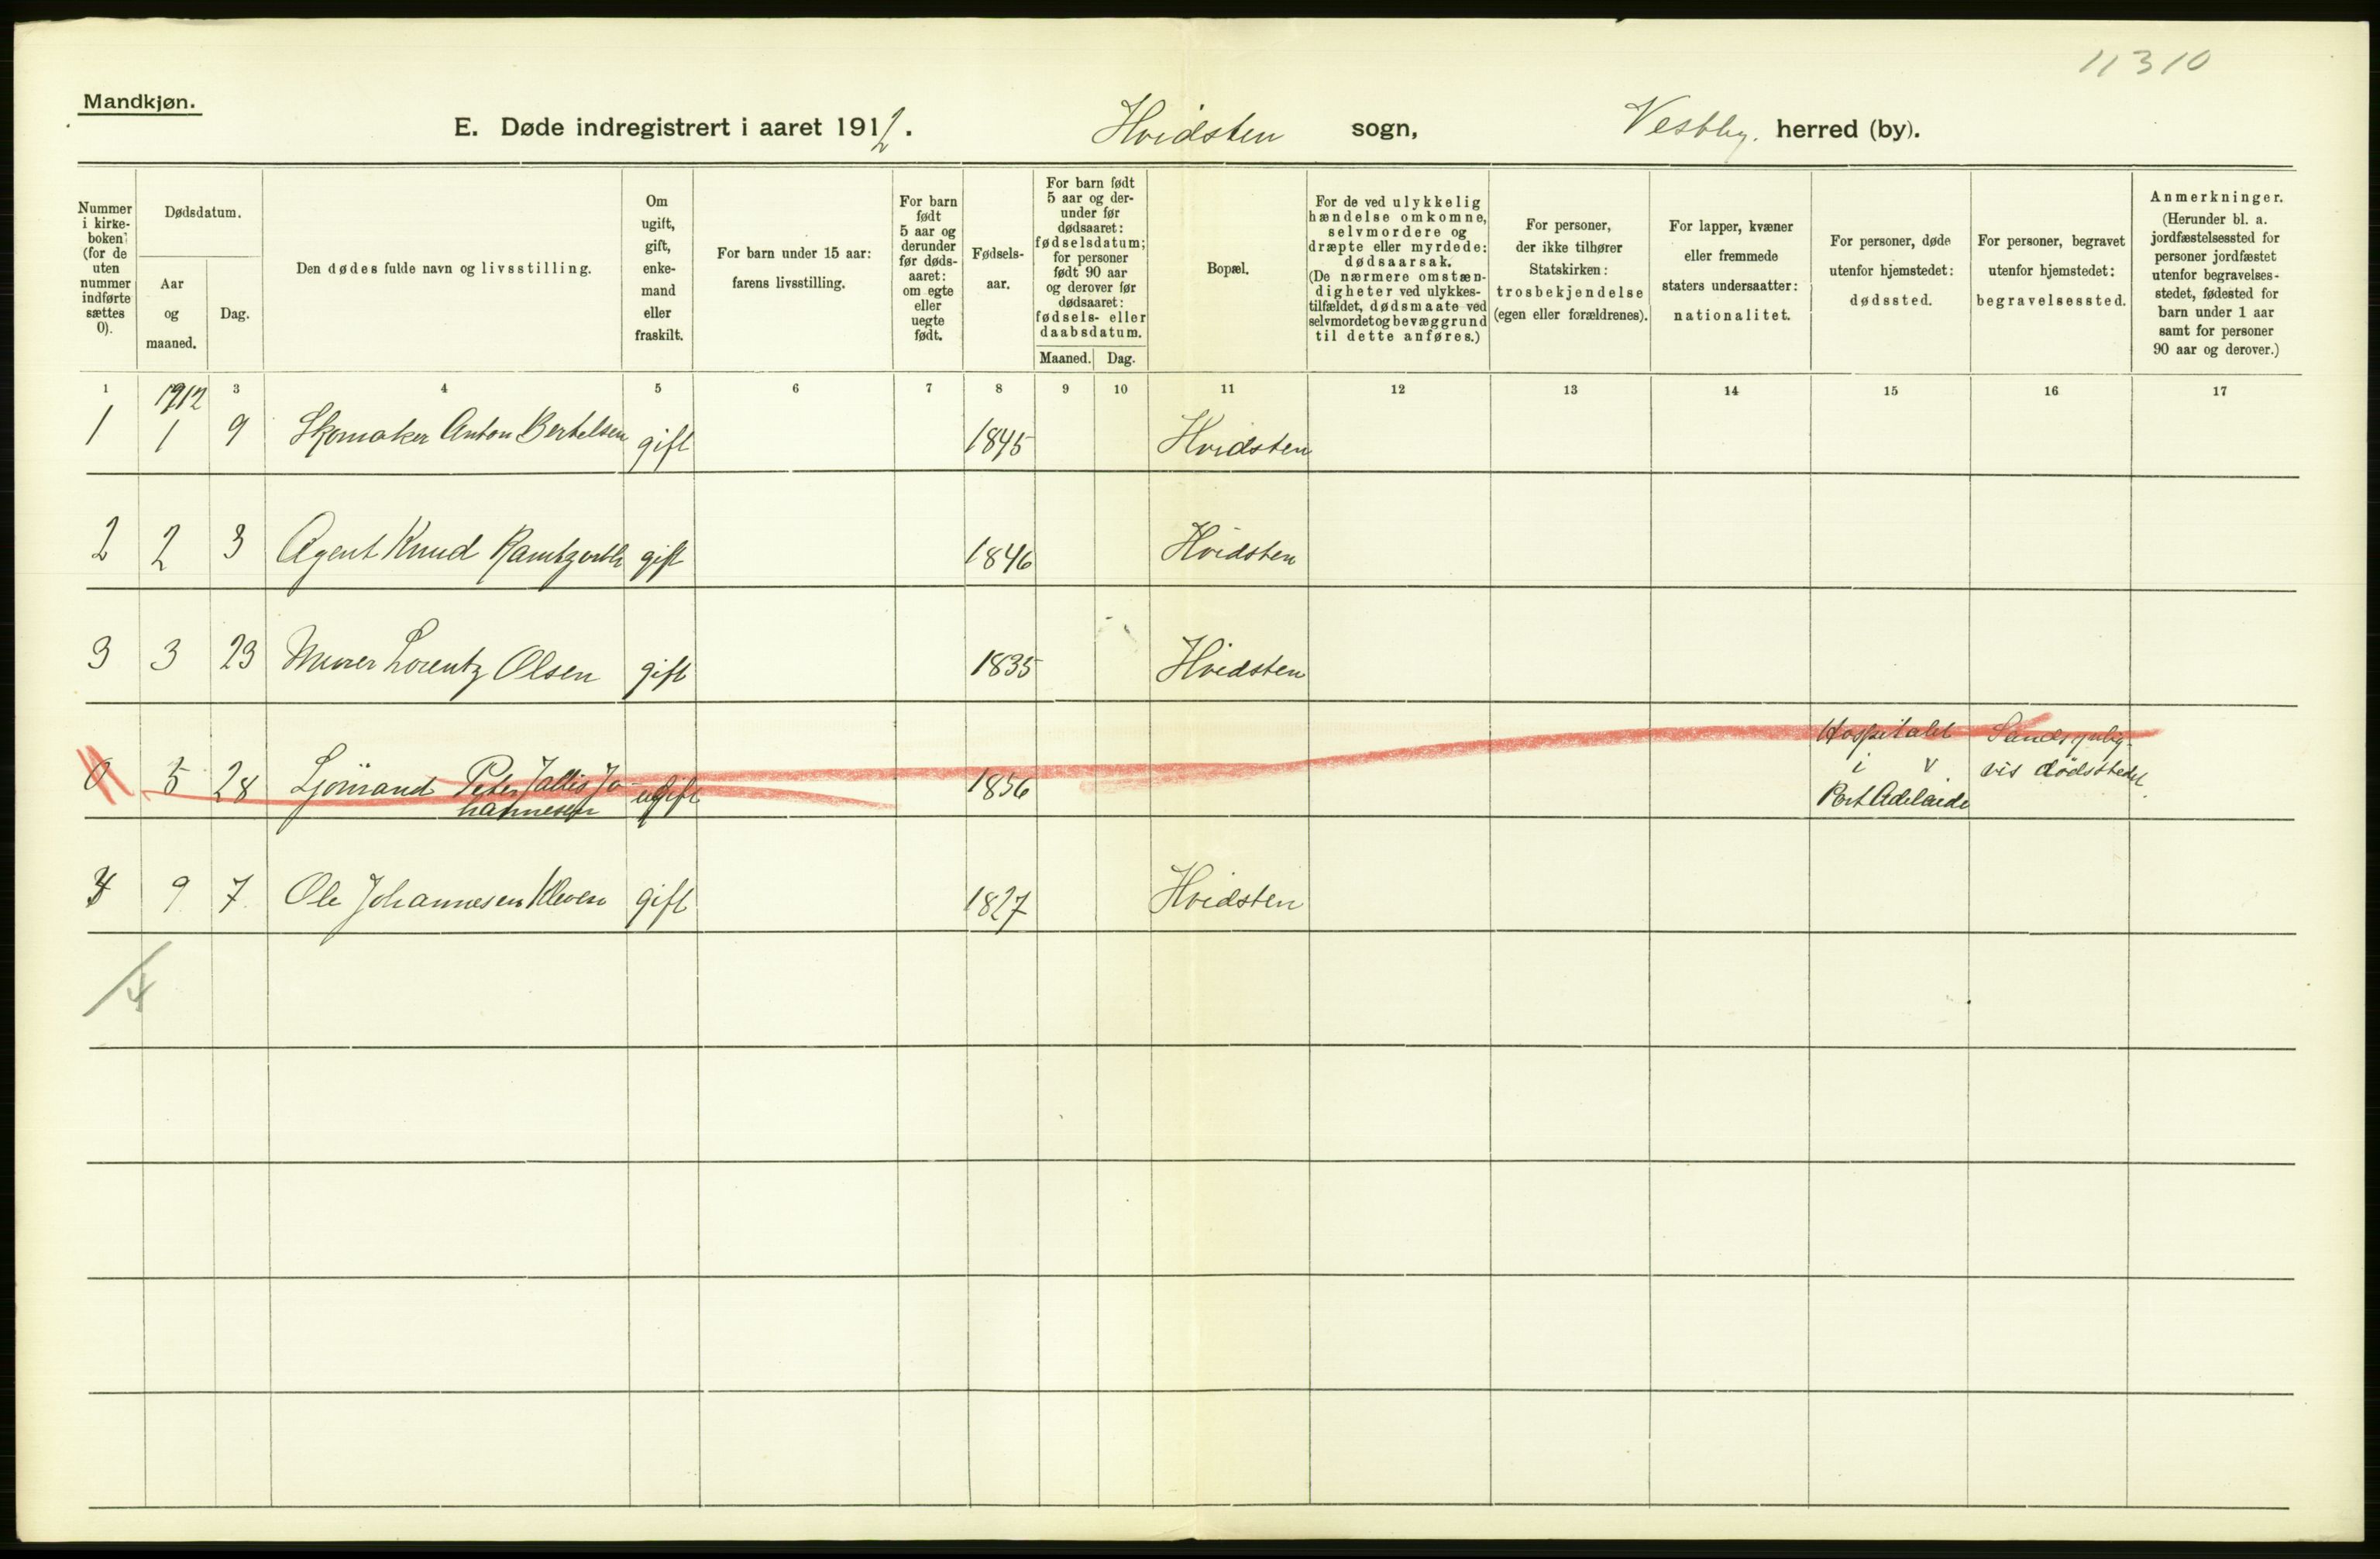 11310
Mandkjøn.
E. Døde indregistrert i aaret 1912. Hvidsten sogn, Vestby. herred (by).
Nummer i kirke- boken (for de uten nummer indførte sættes 0).
Dødsdatum.
Aar og maaned.
Dag.
Den dødes fulde navn og livsstilling.
Om ugift, gift, enke- mand eller fraskilt.
For barn under 15 aar: farens livsstilling.
For barn født 5 aar og derunder før døds- aaret: om egte eller uegte født.
Fødsels- aar.
For barn født 5 aar og der- under før dødsaaret: fødselsdatum; for personer født 90 aar og derover før dødsaaret: fødsels- eller daabsdatum.
Maaned. Dag.
Bopæl.
For de ved ulykkelig hændelse omkomne, selvmordere og dræpte eller myrdede: dødsaarsak. (De nærmere omstæn- digheter ved ulykkes- tilfældet, dødsmaate ved selvmordet og bevæggrund til dette anføres.)
For personer, der ikke tilhører Statskirken: trosbekjendelse (egen eller forældrenes).
For lapper, kvæner eller fremmede staters undersaatter: nationalitet.
For personer, døde utenfor hjemstedet: dødssted.
For personer, begravet utenfor hjemstedet: begravelsessted.
Anmerkninger. (Herunder bl. a. jordfæstelsessted for personer jordfæstet utenfor begravelses- stedet, fødested for barn under 1 aar samt for personer 90 aar og derover.)
1 3 4 5 6 7 8 9 10 11 12 13 14 15 16 17
1912
1 1 9 Skomaker Anton Bertelsen gift 1845 Hvidsten
2 2 3 Agent Knud gift 1846 Hvidsten
3 3 23 Murer Lorentz Olsen gift 1835 Hvidsten
0 5 28 Sjömand Peter Jo- ugift 1856 Hospitalet i Port Adelaide Sandsynlig- vis dödsstedet.
hannesen
4 9 7. Ole Johannesen Kleven gift 1827 Hvidsten
4